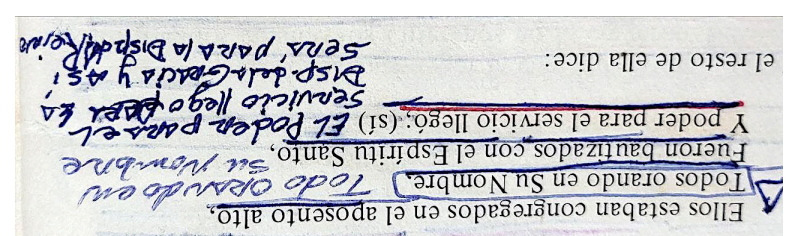 Ellos estaban congregados en el aposento alto,
Todos orando en Su Nombre. Todo ORANDO en
su Nombre
Fueron bautizados con el Espíritu Santo,
Y poder para el servicio llegó; (sí) EL PodeR paRa eL
SeRvicio llego PARA LA
DISP. de la GRacia y ASi
SeRá paRa la Disp del Reino
el resto de ella dice: